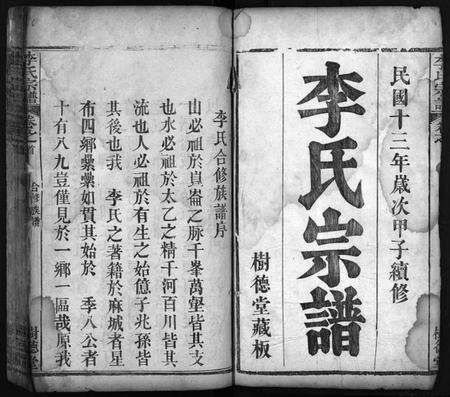 民國十三年歲次甲子續修
李氏宗譜
樹德堂藏板
李氏合修族譜序
山必祖於崑崙之脉千峯萬壑皆其支
也水必祖於太乙之精千河百川皆其
流也人必祖於有生之始億子兆孫皆
其後也我 李氏之著籍於麻城者星
布四鄉纍纍如貫其始於 季八公者
十有八九豈僅見於一鄉一區哉原我
李氏宗譜
卷之首
合修族譜
樹德堂